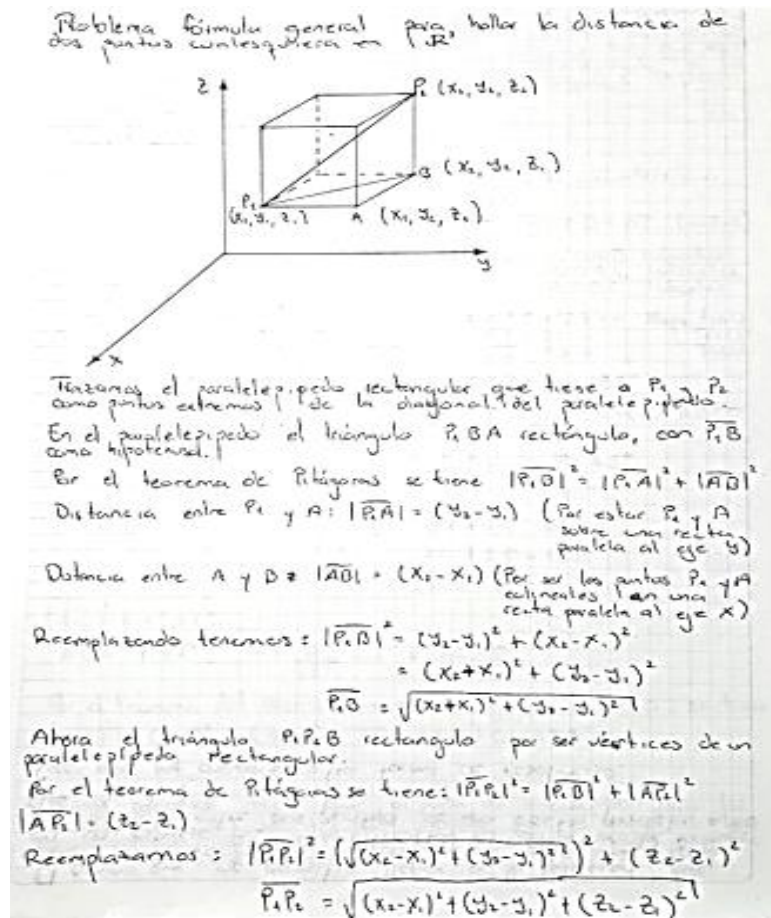 Problema fórmula general para hallar la distancia de
dos puntos cualesquiera en R³
z
P₂ (x₂, y₂, z₂)
B (x₂, y₂, z₁)
P₁
(x₁, y₁, z₁)
A (x₁, y₂, z₁)
y
x
Trazamos el paralelepipedo rectangular que tiene a P₁ y P₂
como puntos extremos de la diagonal del paralelepipedo.
En el paralelepipedo el triángulo P₁BA rectángulo, con P₁B
como hipotenusa.
Por el teorema de Pitágoras se tiene |P₁B|² = |P₁A|² + |AB|²
Distancia entre P₁ y A: |P₁A| = (y₂-y₁) (Por estar P₁ y A
sobre una recta
paralela al eje y)
Distancia entre A y B = |AB| = (x₂-x₁) (Por ser los puntos P₁ y A
colineales en una
recta paralela al eje x)
Reemplazando tenemos: |P₁B|² = (y₂-y₁)² + (x₂-x₁)²
= (x₂+x₁)² + (y₂-y₁)²
P₁B = √(x₂+x₁)² + (y₂-y₁)²
Ahora el triángulo P₁P₂B rectangulo por ser vértices de un
paralelepípedo rectangular.
Por el teorema de Pitágoras se tiene: |P₁P₂|² = |P₁B|² + |AP₂|²
|AP₂| = (z₂-z₁)
Reemplazamos: |P₁P₂|² = (√(x₂-x₁)² + (y₂-y₁)²)² + (z₂-z₁)²
P₁P₂ = √(x₂-x₁)² + (y₂-y₁)² + (z₂-z₁)²